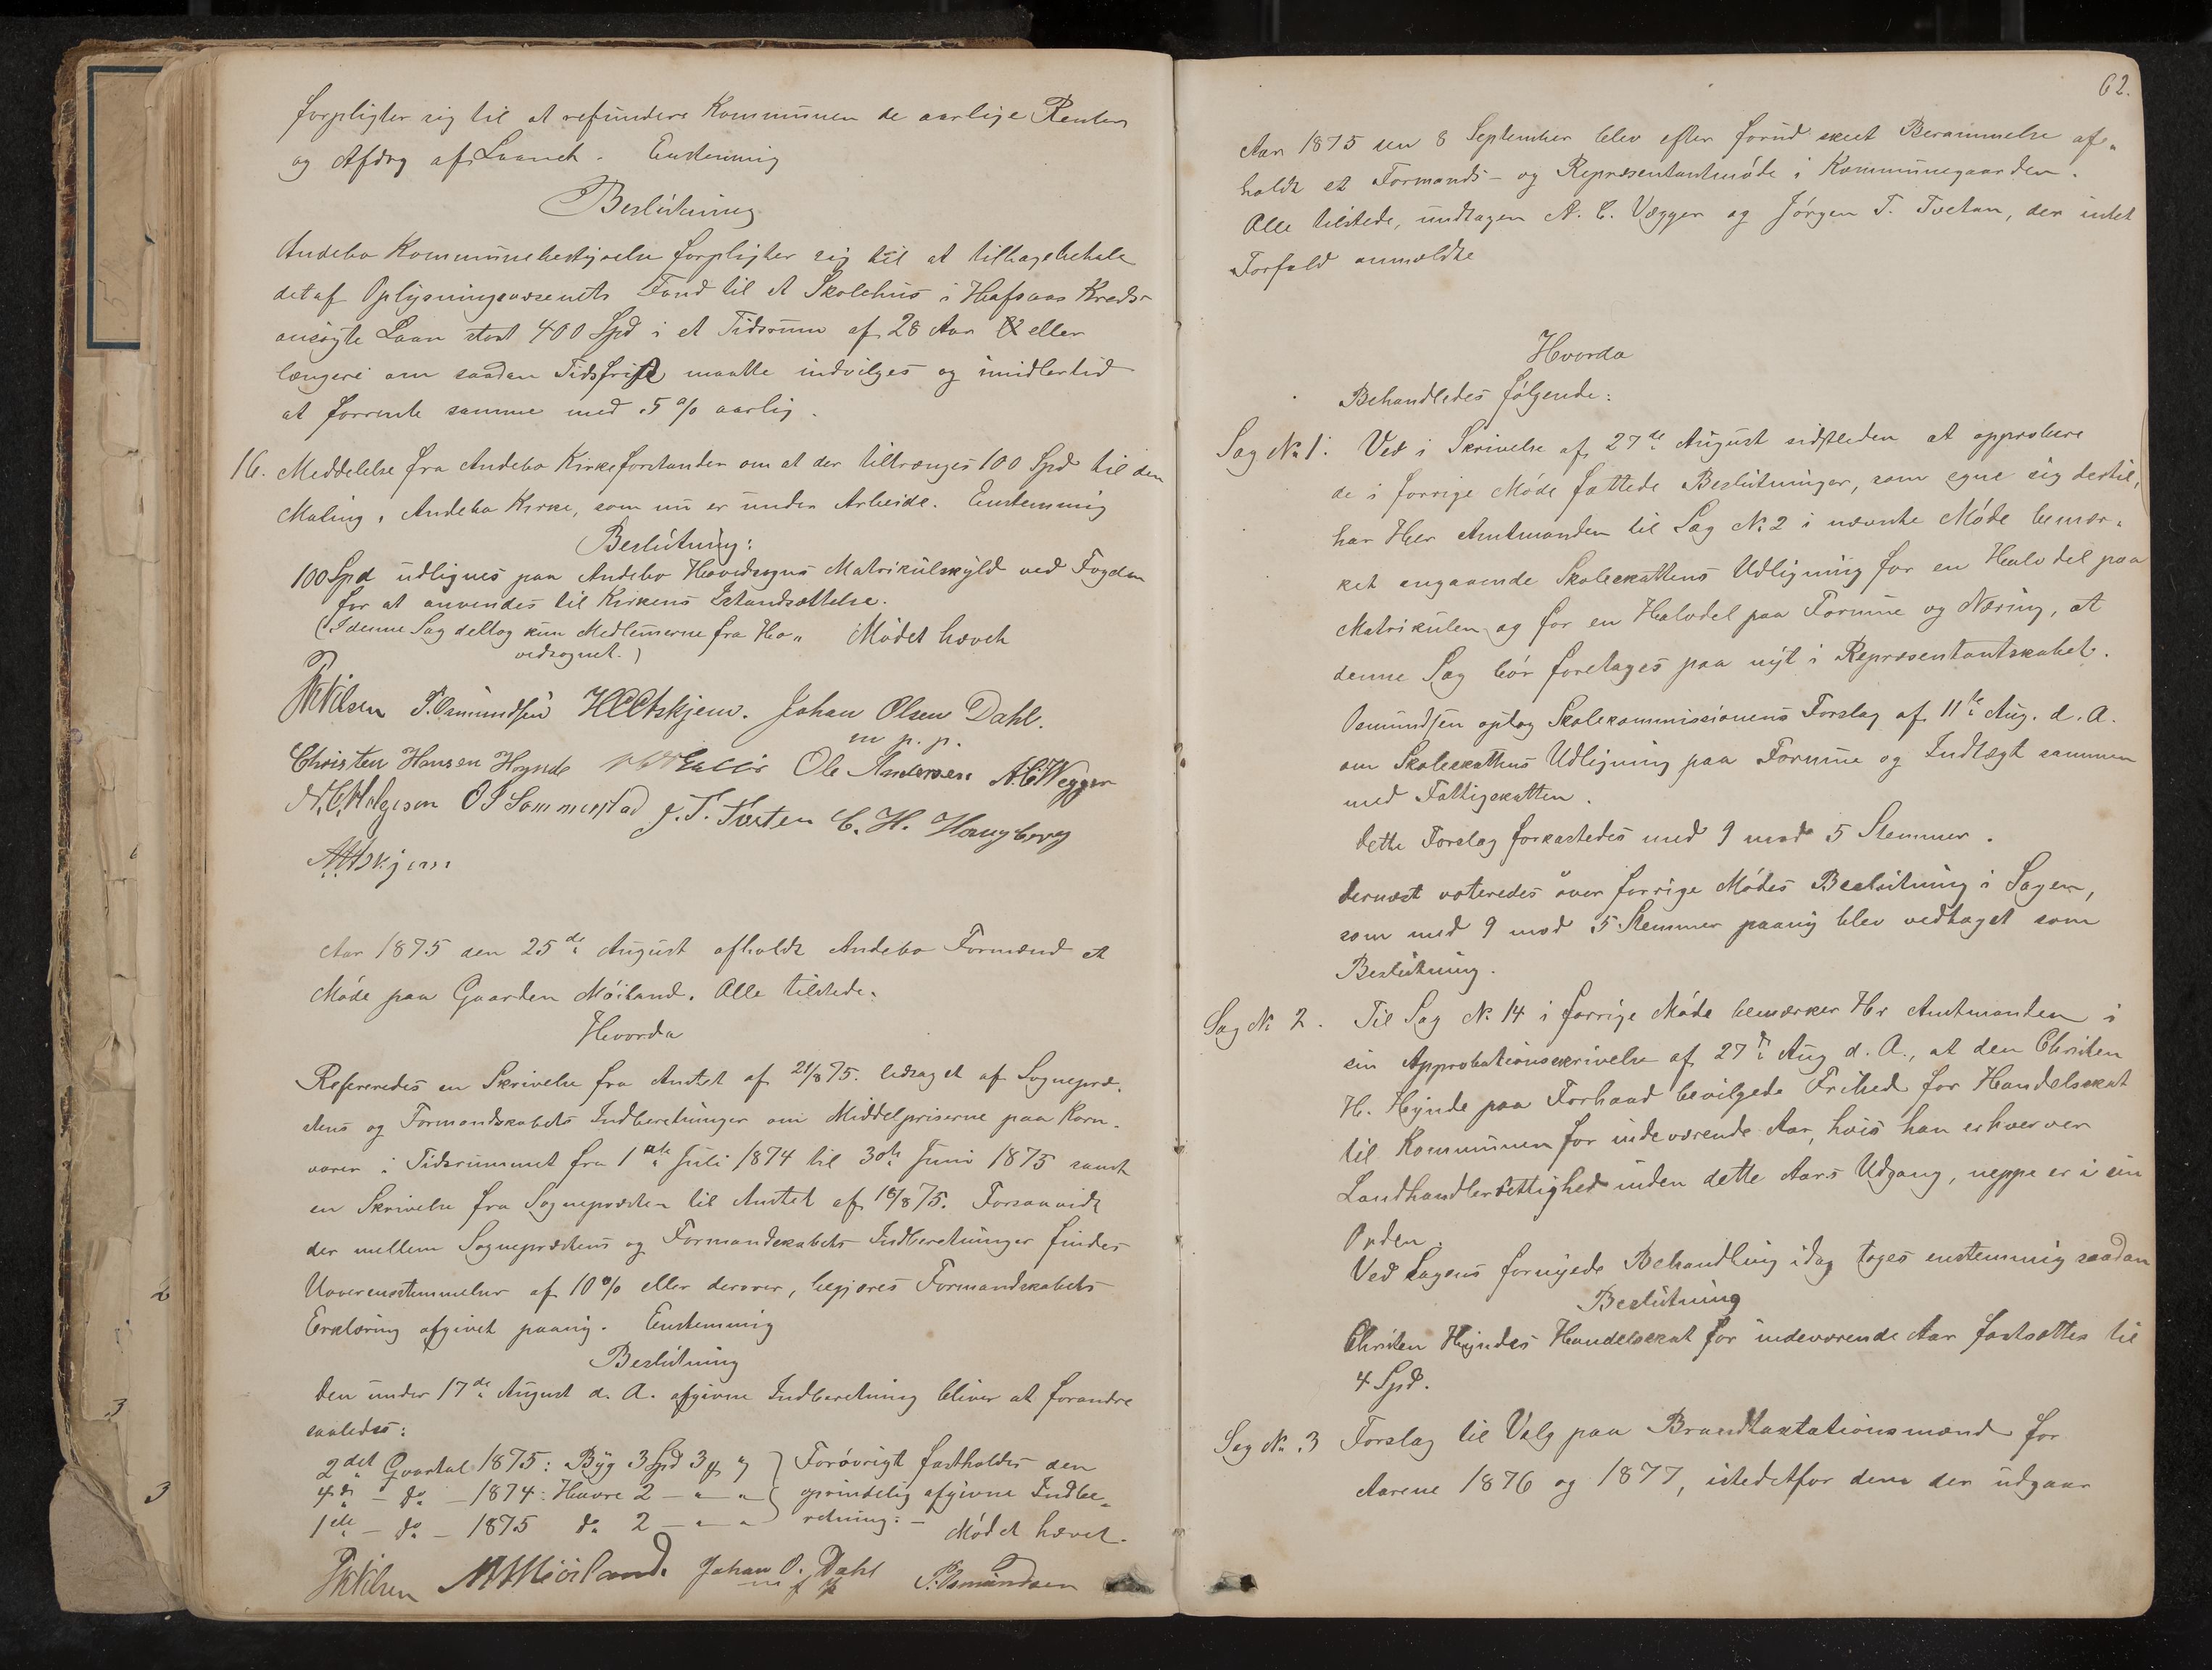 forpligter sig til at refundere Kommunen de aarlige Renter
og Afdrag af Laanet. Enstemmig
Beslutning
Andebo Kommunebestyrelse forpligter sig til at tilbagebetale
det af Oplysningsvæsenets Fond til et Skolehus i Høfsaas Kreds
ansøgte Laan stort 400 Spd i et Tidsrum af 28 Aar eller
længere om saadan Tidsfrist maatte indvilges og imidlertid
at forrente samme med 5 % aarlig.
16. Meddelelse fra Andebo Kirkeforstander om at der tiltrænges 100 Spd til den
Maling i Andebo Kirke, som nu er under Arbeide. Enstemmig
Beslutning:
100 Spd udlignes paa Andebo Hovedsogns Matrikulskyld ved Fogden
for at anvendes til Kirkens Istandsættelse.
(I denne Sag deltog kun Medlemerne fra Ho„ Mødet hævet
vedsognet.)
P. Osmundsen Johan Olsen Dahl.
m. p. p.
Christen Hansen Hynde Ole Andersen A. C. Wegger
O S Sommerstad J. T. Tveten C. H. Haugberg
A. Askjem
Aar 1875 den 25de August afholdt Andebo Formænd et
Møde paa Gaarden Møiland. Alle tilstede.
Hvorda
Refereredes en Skrivelse fra Amtet af 21/8 75. ledsaget af Sognepræ-
stens og Formandskabets Indberetninger om Middelpriserne paa Korn-
varer i Tidsrummet fra 1ste Juli 1874 til 30te Juni 1875 samt
en Skrivelse fra Sognepræsten til Amtet af 18/8 75. Forsaavidt
der mellem Sognepræstens og Formandskabets Indberetninger findes
Uoverensstemmelser af 10 % eller derover, begjæres Formandskabets
Erklæring afgivet paany. Enstemmig
Beslutning
Den under 17de August d. A. afgivne Indberetning bliver at forandre
saaledes:
2det Qvartal 1875: Byg 3 Spd 3 Forøvrigt fastholdes den
4de – do – 1874: Havre 2 – „ – „ oprindelig afgivne Indbe-
1ste – do – 1875 do 2 – „ – „ retning: – Mødet hævet.
M Møiland. Johan O. Dahl P. Osmundsen
m p p
62.
Aar 1875 den 8 September blev efter forud skeet Berammelse af„
holdt et Formands- og Repræsentantmøde i Kommunegaarden.
Alle tilstede, undtagen A. C. Vegger og Jørgen T. Tvetan, der intet
Forfald anmeldte
Hvorda
Behandledes følgende:
Sag No 1. Ved i Skrivelse af 27de August sidstleden at approbere
de i forrige Møde fattede Beslutninger, som egne sig dertil,
har Herr Amtmanden til Sag No 2 i nævnte Møde bemær„
ket angaaende Skoleskattens Udligning for en Halvdel paa
Matrikulen og for en Halvdel paa Formue og Næring, at
denne Sag bør foretages paa nyt i Repræsentantskabet.
Osmundsen optog Skolekommissionens Forslag af 11te Aug. d. A.
om Skoleskattens Udligning paa Formue og Indtægt sammen
med Fattigskatten.
Dette Forslag forkastedes med 9 mod 5 Stemmer.
Dernæst voteredes over forrige Mødes Beslutning i Sagen,
som med 9 mod 5 Stemmer paany blev vedtaget som
Beslutning.
Sag No 2. Til Sag No 14 i forrige Møde bemærker Hr Amtmanden i
sin Approbationsskrivelse af 27de Aug d. A., at den Christen
H. Hynde paa Forhaand bevilgede Frihed for Handelsskat
til Kommunen for indeværende Aar, hvis han erhverver
Landhandlerrettighed inden dette Aars Udgang, neppe er i sin
Orden.
Ved Sagens fornyede Behandling idag toges enstemmig saadan
Beslutning
Christen Hyndes Handelsskat for indeværende Aar fastsættes til
4 Spd.
Sag No 3 Forslag til Valg paa Brandtaxtationsmænd for
Aarene 1876 og 1877, istedetfor dem der udgaar